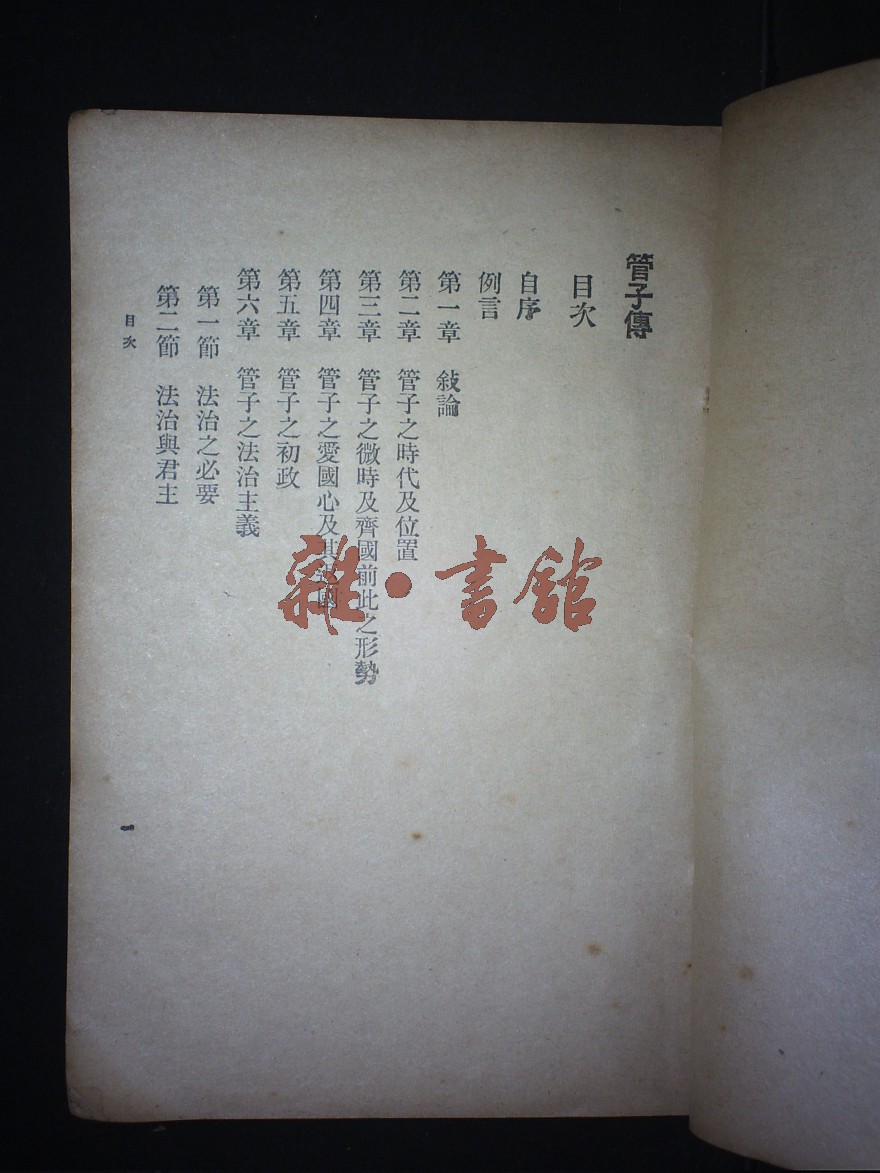 管子傳
目次
自序
例言
第一章 敍論
第二章 管子之時代及位置
第三章 管子之微時及齊國前此之形勢
第四章 管子之愛國心及其返國
第五章 管子之初政
第六章 管子之法治主義
第一節 法治之必要
第二節 法治與君主
目次
一
雜·書館